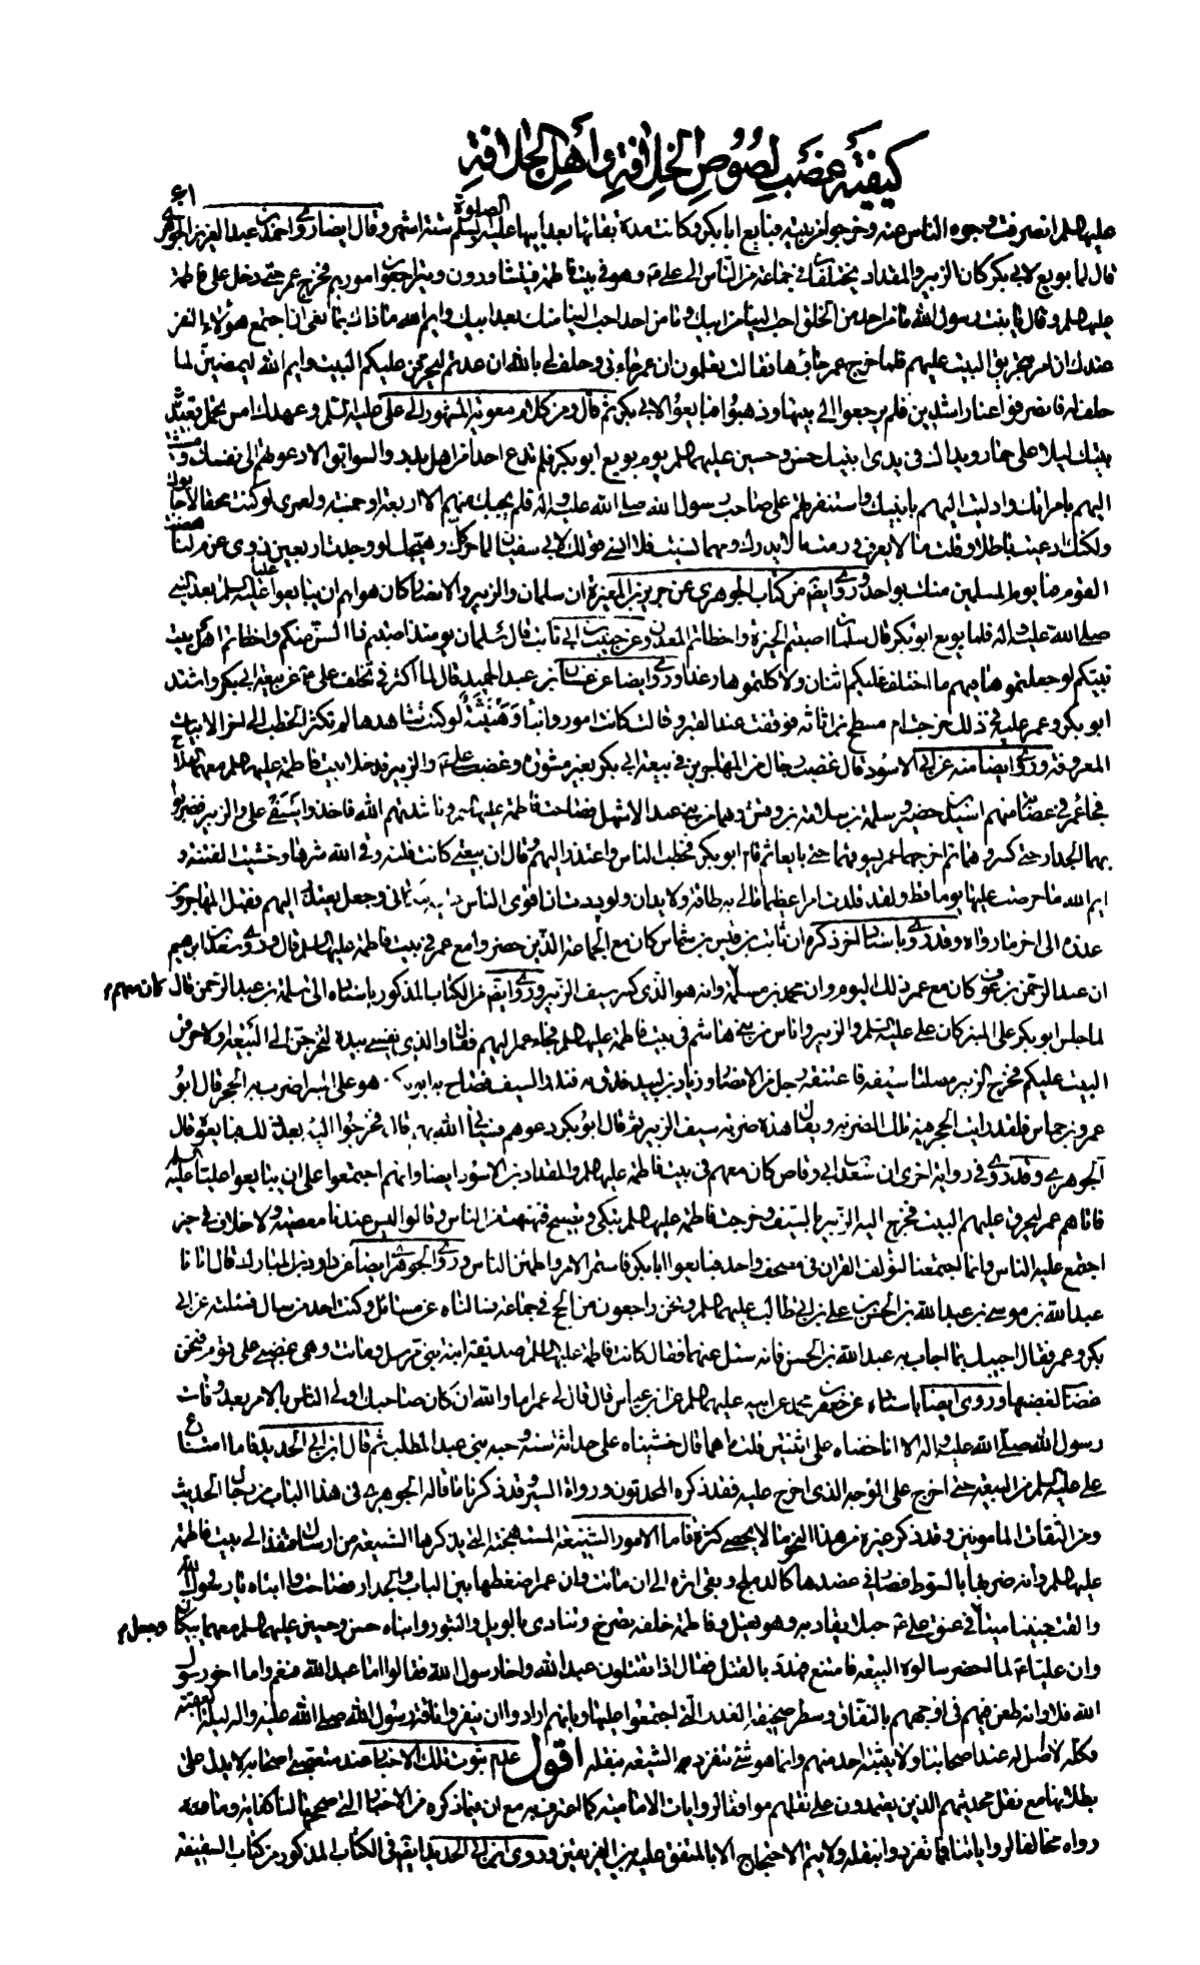 كيفية غصب لصوص الخلافة وأهل الجلافة
٤١
عليها السلم انصرفت وجوه الناس عنه وخرجوا من بيته فبايع ابا بكر وكانت مدة بقائها بعد ابيها عليه الصلوة والسلم ستة اشهر وقال ايضا روى احمد بن عبد العزيز الجوهرى
قال لما بويع لابي بكر كان الزبير والمقداد يختلفان في جماعة من الناس الى علي ع وهو في بيت فاطمة فيتشاورون ويتراجعون امورهم فخرج عمر حتى دخل على فاطمة
عليها السلم وقال يا بنت رسول الله ما من احد من الخلق احب الينا من ابيك وما من احد احب الينا منك بعد ابيك وايم الله ما ذاك بمانعى ان اجتمع هؤلاء النفر
عندك ان امر بتحريق البيت عليهم فلما خرج عمر جاؤها فقالت تعلمون ان عمر جاءنى وحلف لى بالله ان عدتم ليحرقن عليكم البيت وايم الله ليمضين لما
حلف له فانصرفوا عنا راشدين فلم يرجعوا الى بيتها وذهبوا فبايعوا لابي بكر ثم قال ومن كلام معوية المشهور الى على عليه السلم وعهدك امس تحمل قعيدة
بيتك ليلا على حمار ويداك فى يدى ابنيك حسن وحسين عليهما السلم يوم بويع ابو بكر فلم تدع احدا من اهل بدر والسوابق الا دعوتهم الى نفسك ومشيت
اليهم بامراتك وادليت اليهم بابنيك واستنفرتهم على صاحب رسول الله صلى الله عليه واله فلم يجبك منهم الا اربعة او خمسة ولعمرى لو كنت محقا لاجابوك
ولكنك ادعيت باطلا وقلت ما لا يعرف ورمت ما لا يدرك ومهما نسيت فلا انسى قولك لابي سفيان لما حركك وهيجك لو وجدت اربعين ذوى عزم لناهضت
القوم فما يوم المسلمين منك بواحد وروى ايضا من كتاب الجوهرى عن جرير بن المغيرة ان سلمان والزبير والانصار كان هواهم ان يبايعوا عليا عليه السلم بعد النبى
صلى الله عليه واله فلما بويع ابو بكر قال سلمان اصبتم الخيرة واخطاتم المعدن وعن حبيب بن ابي ثابت قال سلمان يومئذ اصبتم ذا السن منكم واخطاتم اهل بيت
نبيكم لو جعلتموها فيهم ما اختلف عليكم اثنان ولاكلتموها رغدا وروى ايضا عن غسان بن عبد الحميد قال لما اكثر فى تخلف على ع عن بيعة ابي بكر واشتد
ابو بكر وعمر عليه فى ذلك خرجت ام مسطح بن اثاثة فوقفت عند القبر وقالت كانت امور وانباء وهنبثة لو كنت شاهدها لم تكثر الخطب الى اخر الابيات
المعروفة وروى ايضا منه عن ابي الاسود قال غضب رجال من المهاجرين فى بيعة ابي بكر بغير مشورة وغضب على ع والزبير فدخلا بيت فاطمة عليها السلم معهما السلاح
فجاء عمر في عصابة منهم اسيد بن حضير وسلمة بن سلامة بن وقش وهما من بنى عبد الاشهل فصاحت فاطمة عليها السلم وناشدتهم الله فاخذوا سيفى على والزبير فضربوا
بهما الجدار حتى كسروهما ثم اخرجهما عمر يسوقهما حتى بايعا ثم قام ابو بكر فخطب الناس واعتذر اليهم وقال ان بيعتى كانت فلتة وقى الله شرها وخشيت الفتنة و
ايم الله ما حرصت عليها يوما قط ولقد قلدت امرا عظيما ما لى به طاقة ولا يدان ولوددت ان اقوى الناس عليه مكانى وجعل يعتذر اليهم فقبل المهاجرون
عذره الى اخر ما رواه وقد روى باسناد اخر ذكره ان ثابت بن قيس بن شماس كان مع الجماعة الذين حضروا مع عمر فى بيت فاطمة عليها السلم قال وروى سعد بن ابرهيم
ان عبد الرحمن بن عوف كان مع عمر ذلك اليوم وان محمد بن مسلمة كان معهم وانه هو الذى كسر سيف الزبير وروى ايضا من الكتاب المذكور باسناده الى سلمة بن عبد الرحمن قال
لما جلس ابو بكر على المنبر كان على عليه السلم والزبير واناس من بنى هاشم فى بيت فاطمة عليها السلم فجاء عمر اليهم فقال والذى نفسى بيده لتخرجن الى البيعة او لاحرقن
البيت عليكم فخرج الزبير مصلتا سيفه فاعتنقه رجل من الانصار وزياد بن لبيد فدق به فندر السيف فصاح به ابو بكر وهو على المنبر اضرب به الحجر قال ابو
عمرو بن حماس فلقد رايت الحجر فيه تلك الضربة ويقال هذه ضربة سيف الزبير ثم قال ابو بكر دعوهم فسياتى الله بهم قال فخرجوا اليه بعد ذلك فبايعوه قال
الجوهرى وقد روى فى رواية اخرى ان سعد بن ابي وقاص كان معهم فى بيت فاطمة عليها السلم والمقداد بن الاسود ايضا وانهم اجتمعوا على ان يبايعوا عليا عليه السلم
فاتاهم عمر ليحرق عليهم البيت فخرج اليه الزبير بالسيف وخرجت فاطمة عليها السلم تبكى وتصيح فنهنهت من الناس وقالوا ليس عندنا معصية ولا خلاف فى خير
اجتمع عليه الناس وانما اجتمعنا لنؤلف القران فى مصحف واحد فبايعوا ابا بكر فاستمر الامر واطمئن الناس وروى الجوهرى ايضا عن داود بن المبارك قال اتانا
عبد الله بن موسى بن عبد الله بن الحسن بن على بن ابي طالب عليهم السلم ونحن راجعون من الحج فى جماعة فسالناه عن مسائل وكنت احد من سال فسئلته عن ابي
بكر وعمر فقال اجيبك بما اجاب به عبد الله بن الحسن فانه سئل عنهما فقال كانت فاطمة عليها السلم صديقة ابنة نبى مرسل وماتت وهى غضبى على قوم فنحن
غضاب لغضبها وروى ايضا باسناده عن جعفر بن محمد عن ابيه عليهما السلم عن ابن عباس قال قال لى عمر اما والله ان كان صاحبك اولى الناس بالامر بعد وفات
رسول الله صلى الله عليه واله الا انا خفناه على اثنتين فقلت ما هما قال خشيناه على حداثة سنه وحبه بنى عبد المطلب ثم قال ابن ابي الحديد فاما امتناع
على عليه السلم من البيعة حتى اخرج على الوجه الذى اخرج عليه فقد ذكره المحدثون ورواة السير وقد ذكرنا ما قاله الجوهرى فى هذا الباب من رجال الحديث
ومن الثقات المامونين وقد ذكر غيره من هذا النحو ما لا يحصى كثرة فاما الامور الشنيعة المستهجنة التى يذكرها الشيعة من ارسال قنفذ الى بيت فاطمة
عليها السلم وانه ضربها بالسوط فصار فى عضدها كالدملج وبقى اثره الى ان ماتت وان عمر اضغطها بين الباب والجدار فصاحت وا ابتاه يا رسول الله
والقت جنينا ميتا وجعل فى عنق على ع حبل يقاد به وهو يعتل وفاطمة خلفه تصرخ وتنادى بالويل والثبور وابناه حسن وحسين عليهما السلم معهما يبكيان
وان عليا ع لما احضر سالوه البيعة فامتنع فهدد بالقتل فقال اذا تقتلون عبد الله واخا رسول الله فقالوا اما عبد الله فنعم واما اخو رسول
الله فلا وانه طعن فيهم فى اوجههم بالنفاق وسطر صحيفة الغدر التى اجتمعوا عليها وبانهم ارادوا ان ينفروا ناقة رسول الله صلى الله عليه واله ليلة العقبة
فكله لا اصل له عند اصحابنا ولا يثبته احد منهم وانما هو شئ تنفرد به الشيعة بنقله اقول عدم ثبوت تلك الاخبار عند متعصبى اصحابه لا يدل على
بطلانها مع نقل محدثيهم الذين يعتمدون على نقلهم موافقا لروايات الامامية كما اعترف به مع ان فيما ذكره من الاخبار التى صححها لنا كفاية وما
رواه مخالفا لرواياتنا فيما تفردوا بنقله ولا يتم الاحتجاج الا بالمتفق عليه بين الفريقين وروى ابن ابي الحديد ايضا فى الكتاب المذكور من كتاب السقيفة